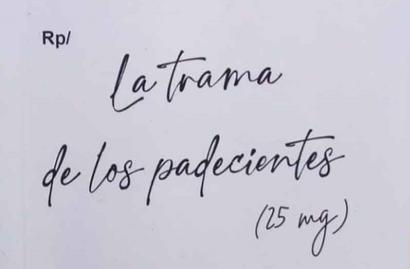 Rp/
La trama
de los padecientes
(25 mg)